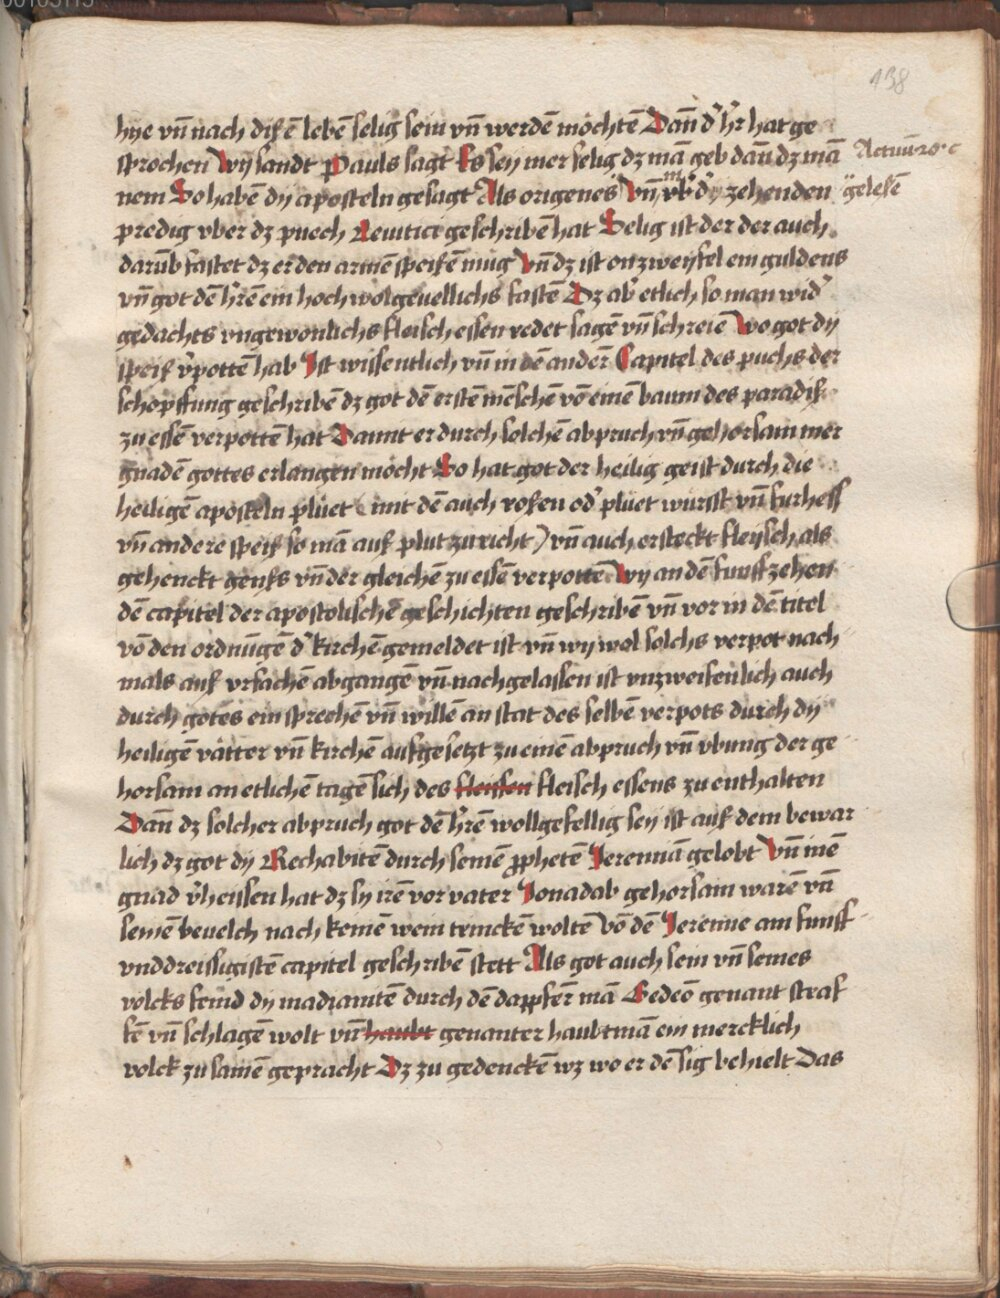 138
hye vñ nach disē lebē selig sein vñ werdē möchtē Dañ d' h'r hat ge
sprochen Wy sandt Pauls sagt Es sey mer selig dz mā geb dañ dz mā
Actuū 20 c
nem So habē dy aposteln gesagt Als origenes Vñ in d' zehenden
gelesē
predig vber dz puech Leuitici geschribē hat Selig ist der der auch
darūb fastet dz er den armē speisē mug Vñ dz ist on zweyfel ein guldens
vñ got dē h'rē ein hoch wolgeuellichs fastē Dz ab' etlich so man wid'
gedachts vngewonlichs fleisch essen redet sagē vñ schreiē Wo got dy
speis v'pottē hab Ist wissentlich vñ in dē ander̄ Capitel des puchs der
schopffung geschribē dz got dē erstē mēschē vō einē baum des paradiß
zu essē verpottē hat Damit er durch solchē abpruch vñ gehorsam mer
gnadē gottes erlangen mocht So hat got der heilig geist durch die
heiligē aposteln plüet (mit dē auch rosen od' plüet wursst vñ furhess
vñ andere speis so mā auß plut zuricht) vñ auch ersteckt fleysch als
gehenckt genss vñ der gleichē zu essē verpottē Wy an dē funffzehen
dē capitel der apostolischē geschichten geschribē vñ vor in dē titel
vō den ordnūgē d' kirchē gemeldet ist vñ wy wol solchs verpot nach
mals auß vrsachē abgangē vñ nachgelassen ist vnzweifenlich auch
durch gotes ein sprechē vñ willē an stat des selbē verpots durch dy
heiligē vätter vñ kirchē aufgesetzt zu einē abpruch vñ vbung der ge
horsam an etlichē tagē sich des fleissen fleisch essens zu enthalten
Dañ dz solcher abpruch got dē h'rē wollgefellig sey ist auß dem bewar
lich dz got dy Rechabitē durch seinē ꝓphetē Jeremiā gelobt Vñ inē
gnad v'heissen hat dz sy irē vor vater Jonadab gehorsam warē vñ
seinē beuelch nach keinē wein trinckē woltē Vō dē Jeremie am funff
vnddreissigistē capitel geschribē stett Als got auch sein vñ seines
volcks feind dy madianitē durch dē dapfer̄ mā Gedeō genant straf
fē vñ schlagē wolt vñ haubt genanter haubtmā ein mercklich
volck zu samē gepracht Dz zu gedenckē wz wo er dē sig behielt Das